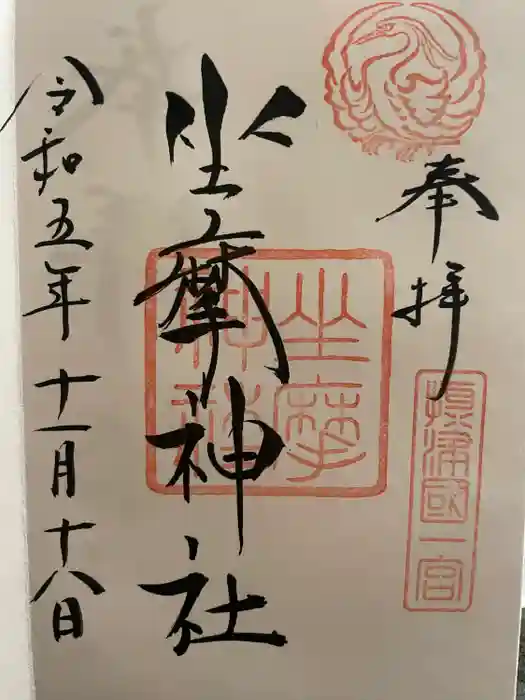 奉拝
攝津國一宮
坐摩神社
坐摩神社
令和五年十一月十八日